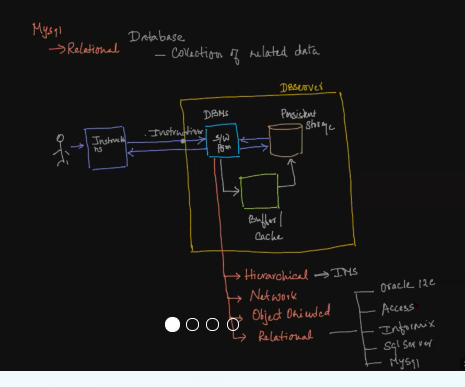 Mysql
→Relational
Database
— Collection of related data
DBserver
DBMS
Persistent
Storage
Instructi
ns
. Instruction
S/W
Pgm
Buffer/
Cache
→ Hierarchical → IMS
→ Network
→ Object Oriented
→ Relational
Oracle 12c
Access
Informix
Sql Server
Mysql